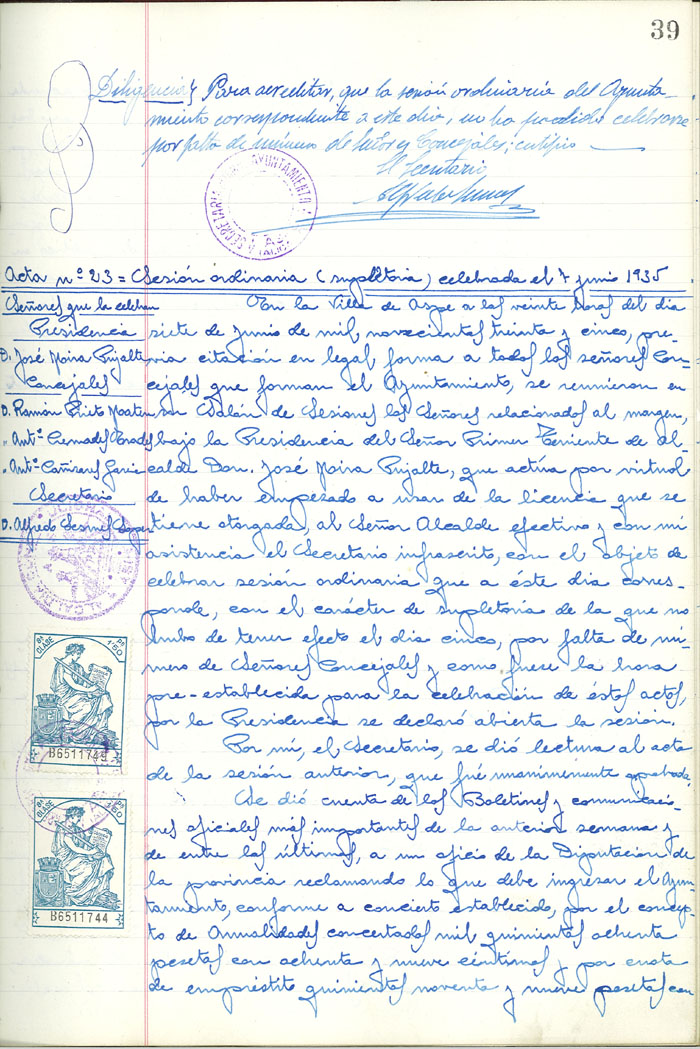 39
Diligencia } Para acreditar, que la sesión ordinaria del Ayunta-
miento correspondiente a este dia, no ha podido celebrarse
por falta de número de Señores Concejales; certifico
El Secretario
SECRETARIA AYUNTAMIENTO
Acta nº 23 = Sesión ordinaria (supletoria) celebrada el 7 junio 1935
Señores que la celebran
Presidencia
D. José Moira Pujalte
Concejales
D. Ramón Prieto
" Antº Cremades
" Antº Cañizares
Secretario
D. Alfredo
En la Villa de Aspe a las veinte horas del dia
siete de junio de mil novecientos treinta y cinco, pre-
via citación en legal forma a todos los señores Con-
cejales que forman el Ayuntamiento, se reunieron en
su Salón de Sesiones los Señores relacionados al margen,
bajo la Presidencia del Señor Primer Teniente de al-
calde Don José Moira Pujalte, que actúa por virtud
de haber empesado a usar de la licencia que se
tiene otorgada, al Señor Alcalde efectivo y con mi
asistencia el Secretario infrascrito, con el objeto de
celebrar sesión ordinaria que a éste dia corres-
ponde, con el carácter de supletoria de la que no
hubo de tener efecto el dia cinco, por falta de nú-
mero de Señores Concejales y como fuese la hora
pre-establecida para la celebración de éstos actos,
por la Presidencia se declaró abierta la sesión.
Por mí, el Secretario, se dió lectura al acta
de la sesión anterior, que fué unanimemente aprobada.
Se dió cuenta de los Boletines y comunicacio-
nes oficiales más importantes de la anterior semana y
de entre los últimos, a un oficio de la Diputación de
la provincia reclamando lo que debe ingresar el Ayun-
tamiento, conforme a concierto establecido, por el concep-
to de Anualidades concertadas mil quinientas ochenta
pesetas con ochenta y nueve céntimos y por cuota
de empréstito quinientas noventa y nueve pesetas con
8ª CLASE 1'50
B6511745
8ª CLASE 1'50
B6511744